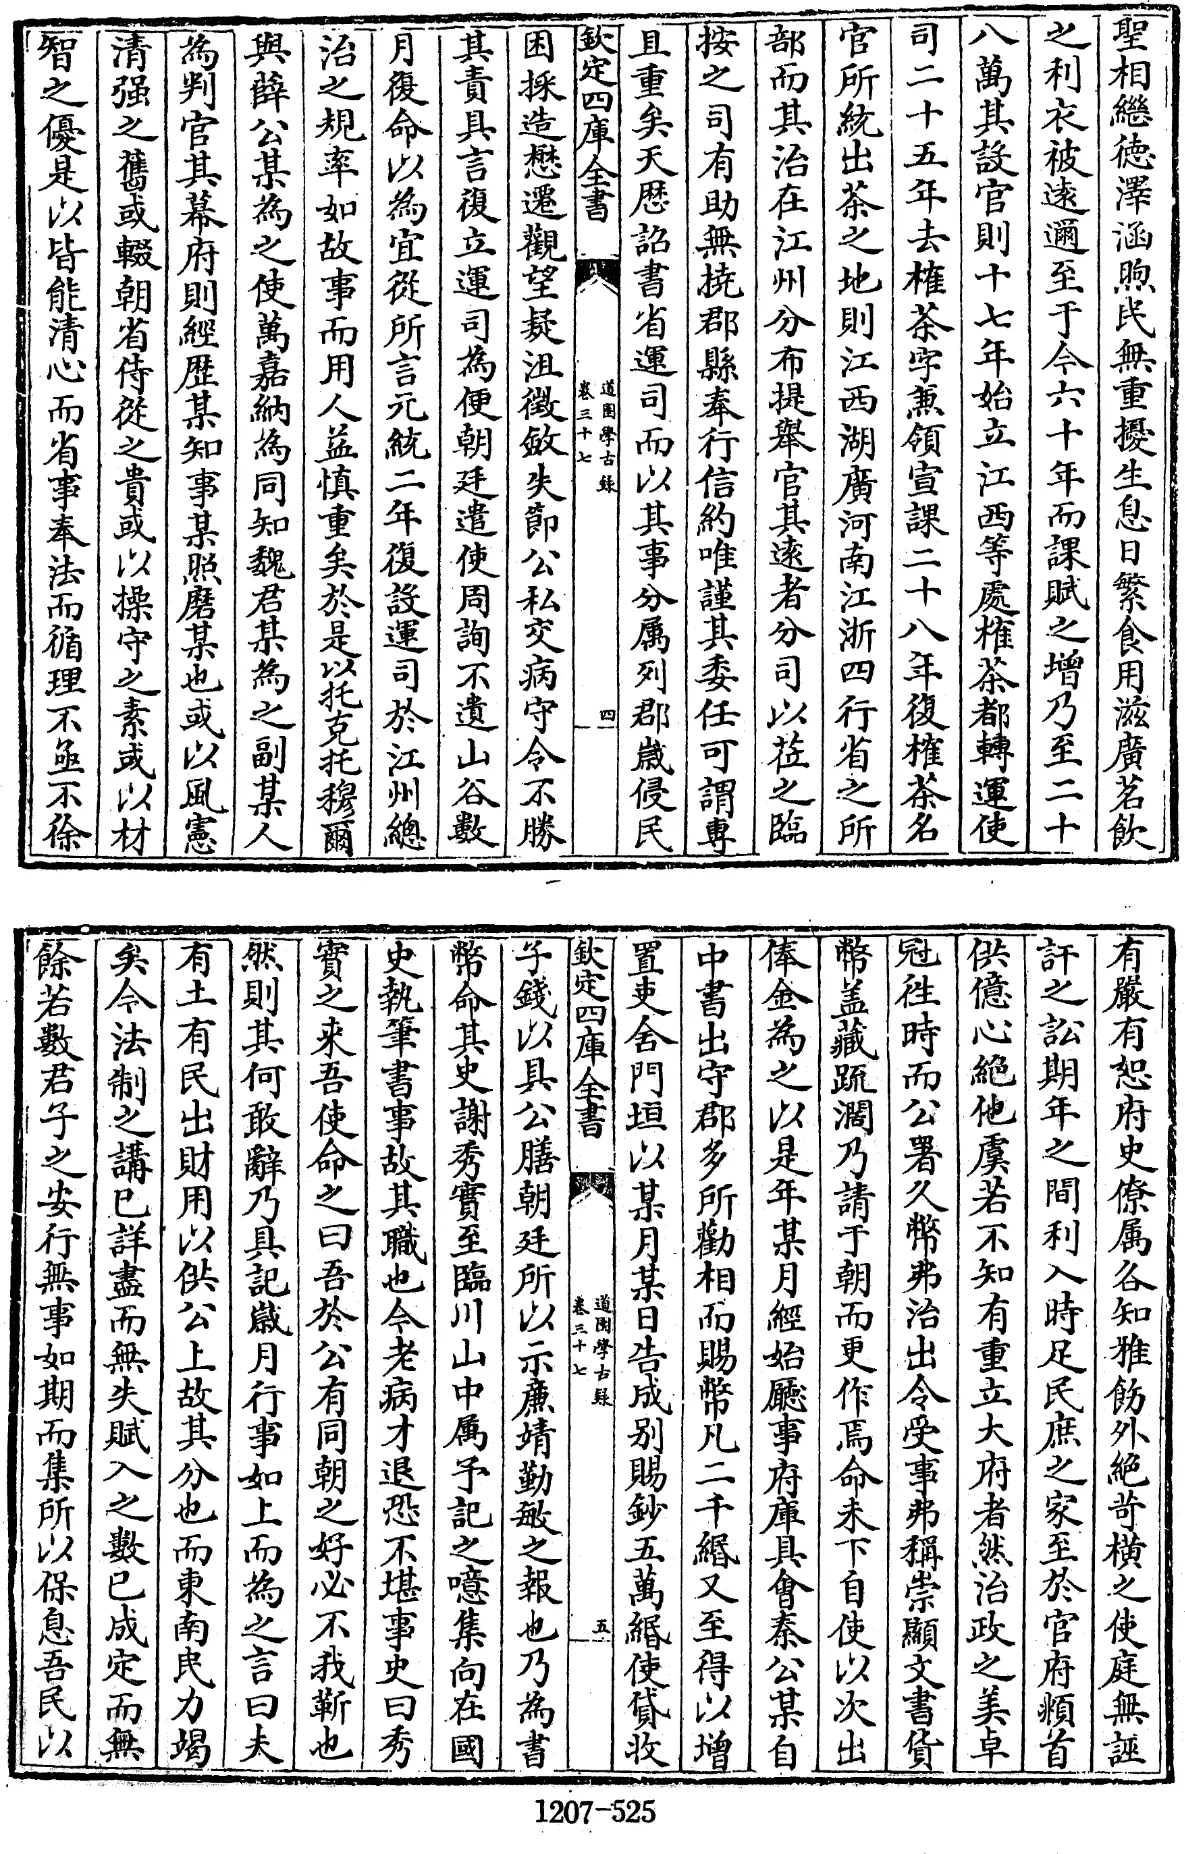 聖相繼徳澤涵煦民無重擾生息日繁食用滋廣茗飲
之利衣被逺邇至于今六十年而課賦之增乃至二十
八萬其設官則十七年始立江西等處𣙜茶都轉運使
司二十五年去𣙜茶字兼領宣課二十八年復𣙜茶名
官所統出茶之地則江西湖廣河南江浙四行省之所
部而其治在江州分布提舉官其逺者分司以莅之臨
按之司有助無撓郡縣奉行信約唯謹其委任可謂專
且重矣天歴詔書省運司而以其事分屬列郡嵗侵民
欽定四庫全書
道園學古録
卷三十七
四
困採造懋遷觀望疑沮徴斂失節公私交病守令不勝
其責具言復立運司為便朝廷遣使周詢不遺山谷數
月復命以為宜從所言元統二年復設運司於江州總
治之規率如故事而用人益慎重矣於是以托克托穆爾
與薛公某為之使萬嘉納為同知魏君某為之副某人
為判官其幕府則經歴某知事某照磨某也或以風憲
清强之舊或輟朝省侍從之貴或以操守之素或以材
智之優是以皆能清心而省事奉法而循理不亟不徐
有嚴有恕府史僚屬各知雅飭外絶苛横之使庭無誣
訐之訟期年之間利入時足民庶之家至於官府頫首
供億心絶他虞若不知有重立大府者然治政之美卓
冠徃時而公署久弊弗治出令受事弗稱崇顯文書貨
幣盖藏疏濶乃請于朝而更作焉命未下自使以次出
俸金為之以是年某月經始廳事府庫具會秦公某自
中書出守郡多所勸相而賜幣凡二千緡又至得以增
置吏舍門垣以某月某日告成别賜鈔五萬緡使貸收
欽定四庫全書
道園學古録
卷三十七
五
子錢以具公膳朝廷所以示亷靖勤敏之報也乃為書
幣命其史謝秀實至臨川山中屬予記之噫集向在國
史執筆書事故其職也今老病才退恐不堪事史曰秀
實之來吾使命之曰吾於公有同朝之好必不我靳也
然則其何敢辭乃具記嵗月行事如上而為之言曰夫
有土有民出財用以供公上故其分也而東南民力竭
矣今法制之講已詳盡而無失賦入之數已成定而無
餘若數君子之安行無事如期而集所以保息吾民以
1207-525